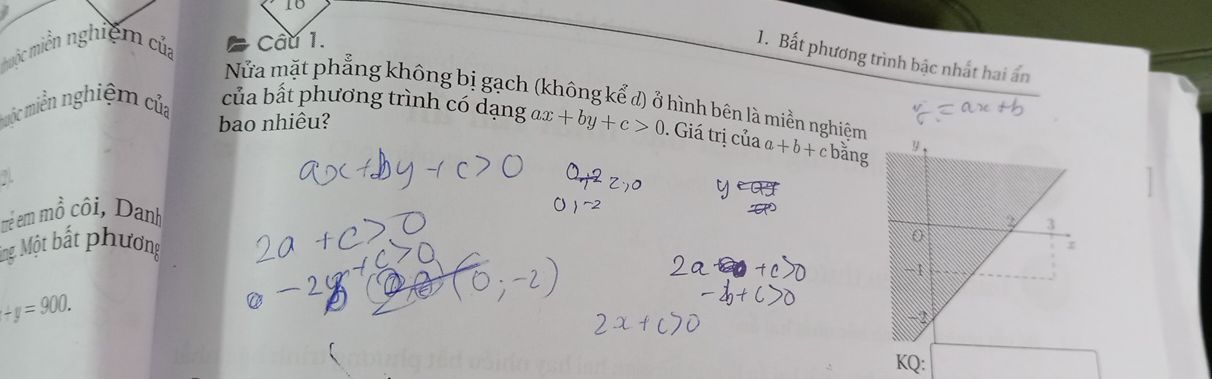 16
thuộc miền nghiệm của
thuộc miền nghiệm của
trẻ em mồ côi, Danh
Một bất phương
+ y = 900.
1. Bất phương trình bậc nhất hai ẩn
Câu 1.
Nửa mặt phẳng không bị gạch (không kể d) ở hình bên là miền nghiệm
của bất phương trình có dạng ax + by + c > 0. Giá trị của a + b + c bằng
bao nhiêu?
= ax + b
ax + by + c > 0
2,0
0,-2
y =
2a + c > 0
+ c > 0
(0; -2)
2a + c > 0
-2b + c > 0
2x + c > 0
y
O
2
3
x
-1
-2
KQ: